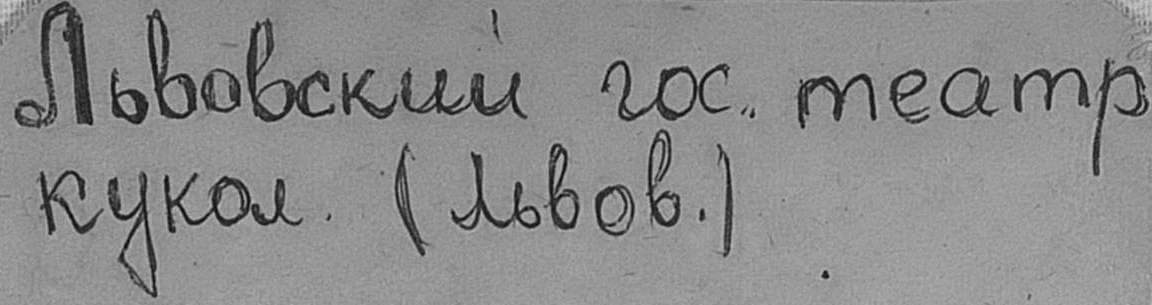 Львовский гос. театр
кукол. (Львов.)